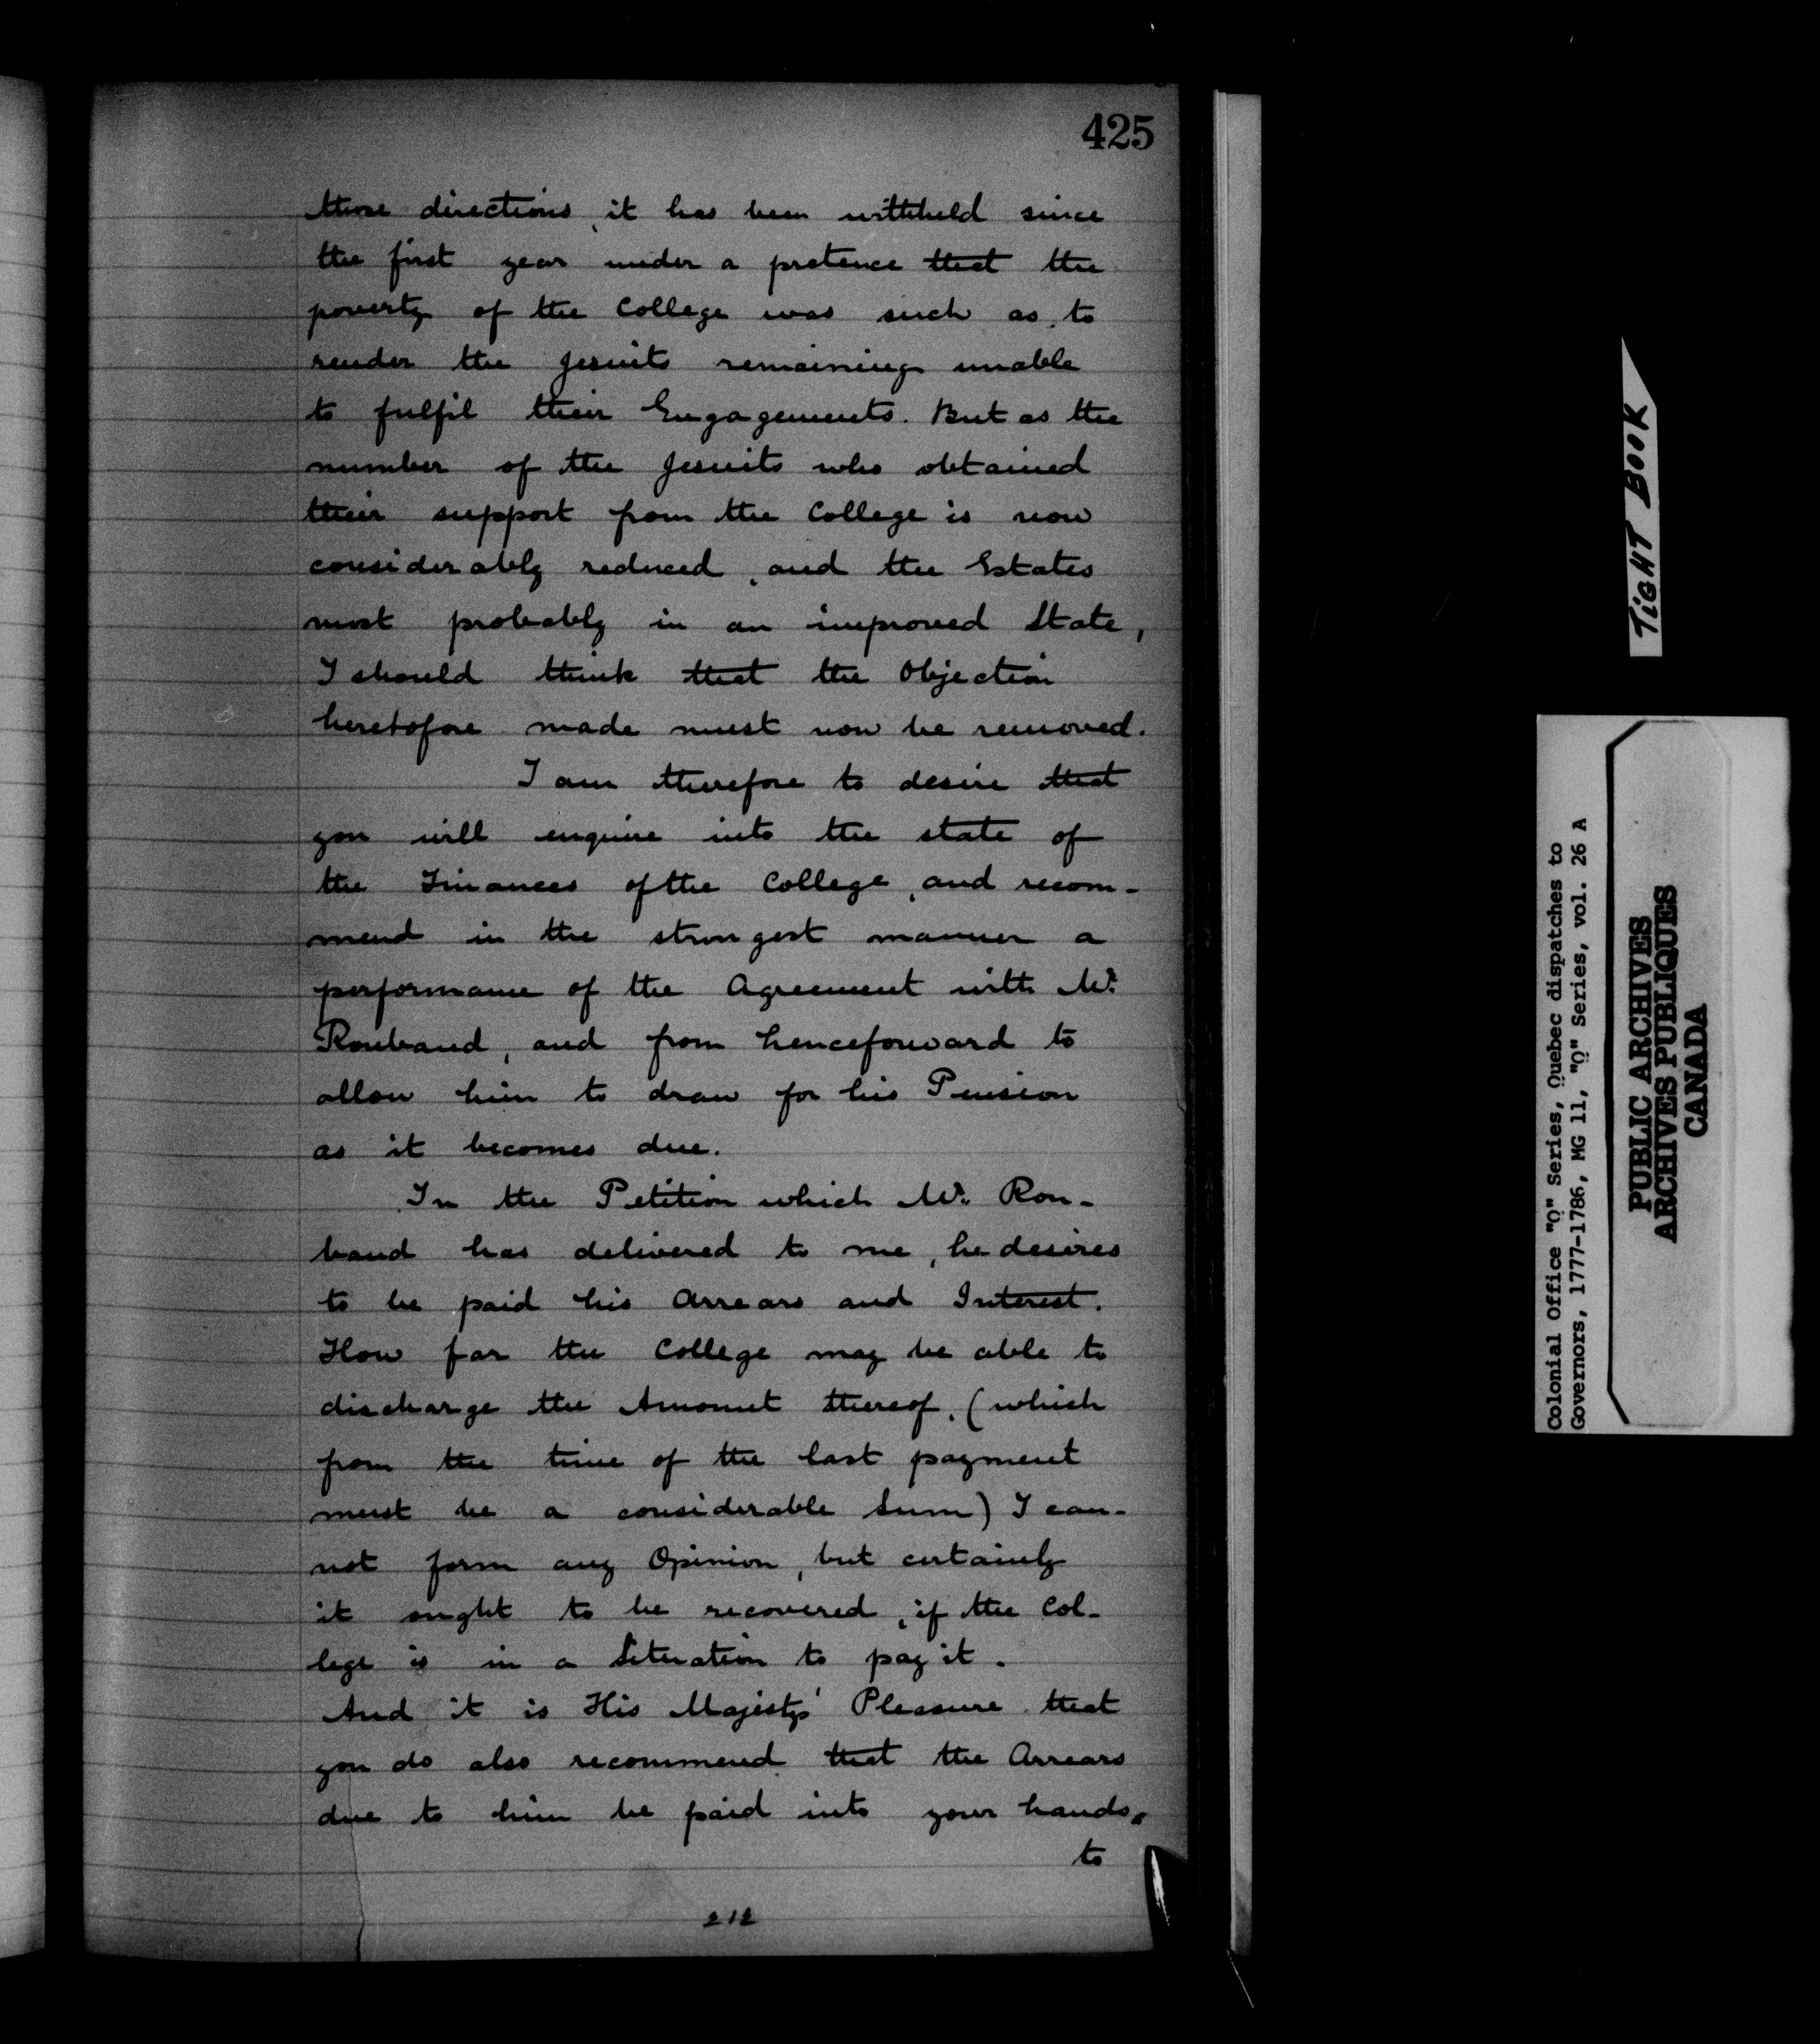 425
those directions, it has been withheld since
the first year under a pretence that the
poverty of the College was such as to
render the Jesuits remaining unable
to fulfil their Engagements. But as the
number of the Jesuits who obtained
their support from the College is now
considerably reduced, and the Estates
most probably in an improved State,
I should think that the Objection
heretofore made must now be removed.
I am therefore to desire that
you will enquire into the state of
the Finances of the College, and recom-
mend in the strongest manner a
performance of the Agreement with Mr.
Roubaud, and from henceforward to
allow him to draw for his Pension
as it becomes due.
In the Petition which Mr. Rou-
baud has delivered to me, he desires
to be paid his Arrears and Interest.
How far the College may be able to
discharge the Amount thereof, (which
from the time of the last payment
must be a considerable Sum) I can-
not form any Opinion, but certainly
it ought to be recovered, if the Col-
lege is in a Situation to pay it.
And it is His Majesty's Pleasure that
you do also recommend that the Arrears
due to him be paid into your hands,
to
212
TIGHT BOOK
Colonial Office "Q" Series, Quebec dispatches to
Governors, 1777-1786, MG 11, "Q" Series, vol. 26 A
PUBLIC ARCHIVES
ARCHIVES PUBLIQUES
CANADA